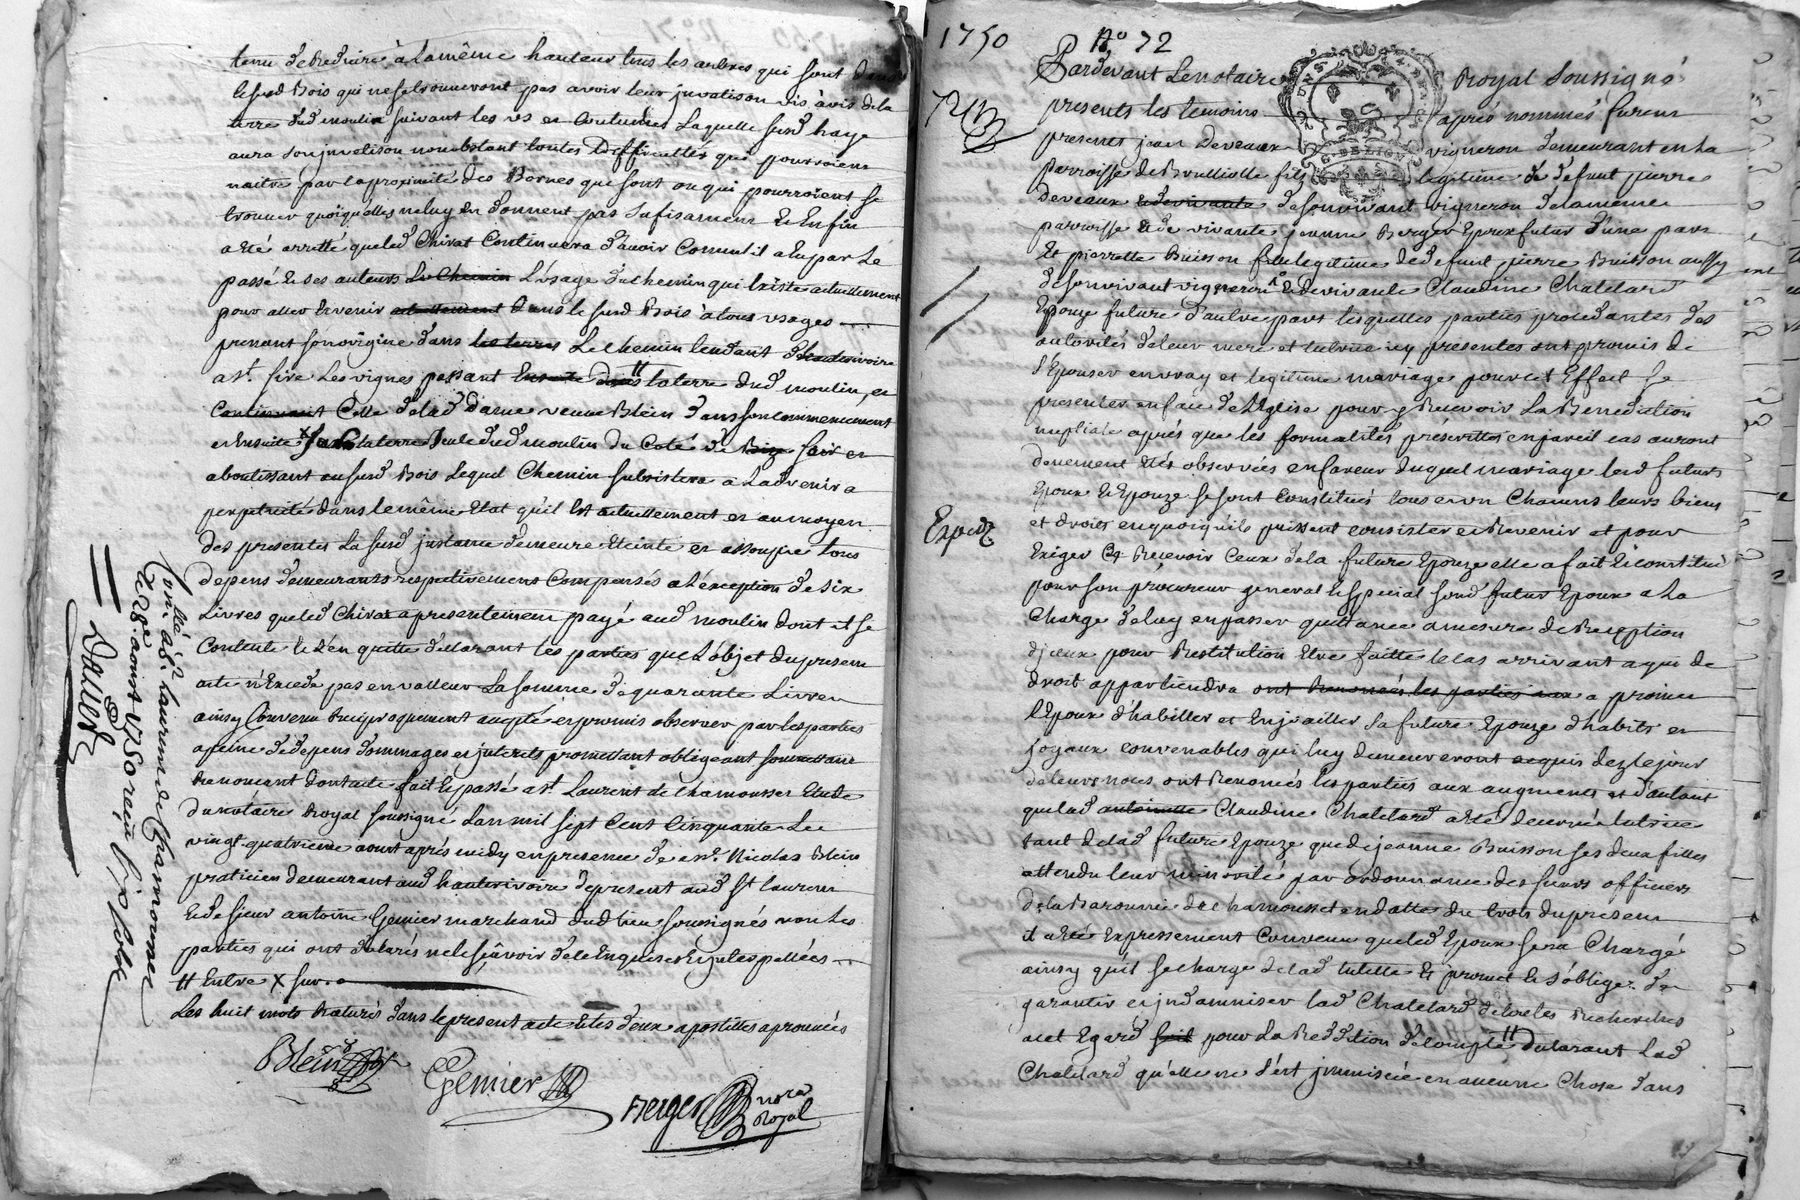 tenu de Reduire à la même hauteur tous les arbres qui sont dans
lesusd Bois qui ne se trouveront pas avoir leur juvalison vis à vis de la
terre dud moulin suivant les us et Coutumes Laquelle susd haye
aura son juvelison nonobstant toutes Difficultés que pourroient
naitre par la proximité des Bornes que sont ou qui pourroient se
trouver quoiqu'elles ne luy en donnent pas sufisament Et Enfin
a été arretté que led Chirat Continuera d'avoir Comme il a eu par Le
passé Et ses auteurs Le Chemin L'usage du chemin qui Existe actuellement
pour aller et venir actuellement dans le susd Bois à tous usages
prenant son origine dans les terres Le chemin tendant
a st. les vignes passant Ensuite dans la terre dud moulin, et
Continuant Celle de lad Dame veuve Blein dans son commencement
et Ensuite X sur la terre seule dud moulin du Coté de Bize soir et
aboutissant ausud Bois Lequel Chemin subsistera a Ladvenir a
perpetuité dans le même Etat qu'il Est actuellement et au moyen
des presentes La susd justance demeure Eteinte et assoupie tous
depens demeurants respectivement Compensés a L'exception de six
Livres que led Chirat a presentement payé aud moulin dont il se
Contente Et L'en quitte declarant les parties que L'objet du present
acte n'Excede pas en valleur La somme de quarante Livres
ainsy Convenu Reciproquement accepté et promis observer par les parties
a peine de depens dommages et juterets promettant obligeant soumettant
Renoncent dont acte fait Et passé a st. Laurent de Chamousset Etude
du notaire Royal soussigné L'an mil sept Cent Cinquante Le
vingt quatrieme aoust après midy en presence de mr. Nicolas Blein
praticien demeurant aud hauterivoire de present aud St laurent
Et de sieur antoine Gemier marchand dud lieu soussignés non Les
parties qui ont declarés ne le sçavoir de ce Enquises Et jnterpellées
II Entre X sur
Les huit mots Raturés dans le present acte Et les deux apostilles aprouvées
Blein
Gemier
Berger nore Royal
Collé à st laurent de Chasmousset
Le 28e aoust 1750 reçu
1750
No 72
Pardevant Le notaire Royal Soussigné
presents les temoins après nommés furent
presents jean Deveaux vigneron demeurant en La
parroisse de Brulliolle fils legitime de defunt pierre
Deveaux et de vivante de son vivant vigneron de la meme
parroisse Et de vivante jeanne Berger Epoux futur d'une part
Et pierrette Buisson fille legitime de defunt pierre Buisson aussy
de son vivant vigneron Et de vivante Claudine Chatelard
Epouze future d'autre part lesquelles parties procedantes des
autorités de leur mere et tutrice icy presentes ont promis de
s'Epouser en vray et legitime mariage pour cet Effect se
presenter en face de l'Eglise pour y Recevoir La Benediction
nuptiale après que les formalités préscrittes en pareil cas auront
duement étés observées en faveur duquel mariage lesd futurs
Epoux Et Epouze se sont Constitués tous et un Chacuns leurs biens
et droits en quoiqu'ils puissent consister et Revenir et pour
Exiger Et Recevoir Ceux de la future Epouze elle a fait Et constitué
pour son procureur general et special sond futur Epoux a La
Charge de luy en passer quittance a mesure de Reception
d'jceux pour Restitution Etre faitte le cas arrivant a qui de
droit appartiendra ont Renoncés les parties aux a promis
l'Epoux d'habiller et Enjoailler sa future Epouze d'habits et
joyaux convenables qui luy demeureront acquis dez le jour
de leurs noces ont Renoncés les parties aux augments et d'autant
que lad antoinette Claudine Chatelard a été decernée tutrice
tant de lad future Epouze que de jeanne Buisson ses deux filles
attendu leur minorité par ordonnance des sieurs officiers
de la Baronnie de Chamousset en datte du trois du present
il a été Expressement Convenu que led Epoux sera Chargé
ainsy qu'il se charge de lad tutelle Et promet Et s'oblige de
garantir et jndamniser lad Chatelard de toutes Recherches
a cet Egard soit pour La Reddition de compte II declarant Lad
Chatelard qu'elle ne s'est jmmiscée en aucune Chose dans
Exped